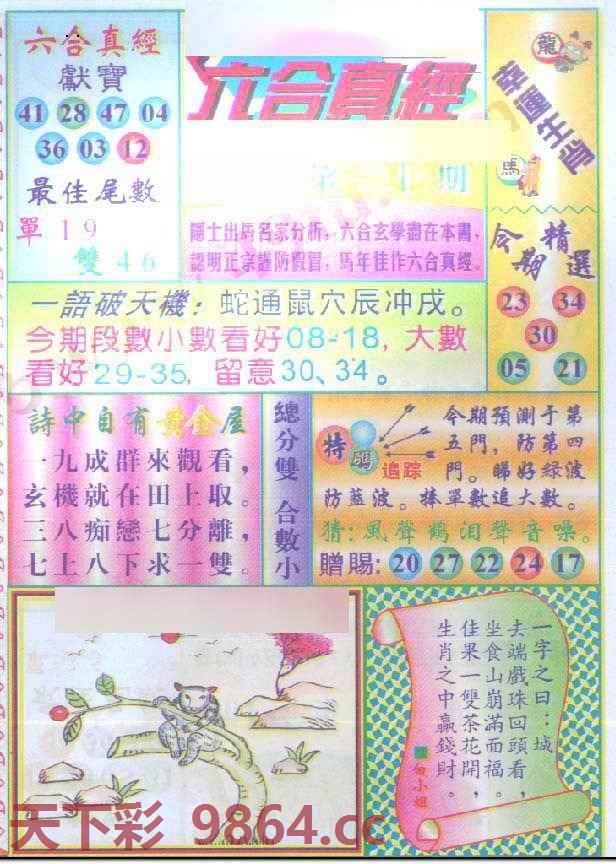 六合真經
獻寶
41 28 47 04
36 03 12
最佳尾數
單 1 9
雙 4 6
六合真經
期
隱士出馬名家分析，六合玄學盡在本書，
認明正宗謹防假冒，馬年佳作六合真經。
龍
幸運生肖
馬
今期精選
23 34
30
05 21
一語破天機：蛇通鼠穴辰冲戌。
今期段數小數看好08-18，大數
看好29-35，留意30、34。
詩中自有黃金屋
一九成群來觀看，
玄機就在田上取。
三八痴戀七分離，
七上八下求一雙。
總分雙 合數小
特碼追踪
今期預測于第
五門，防第四
門。睇好绿波
防藍波。捧單數追大數。
猜：風聲鶴泪聲音嗓。
贈賜：20 27 22 24 17
一字之曰：城
去端戲珠回頭看，
坐食山崩滿而福。
佳果一雙茶花開，
生肖之中贏錢財。
白小姐
天下彩 9864.cc